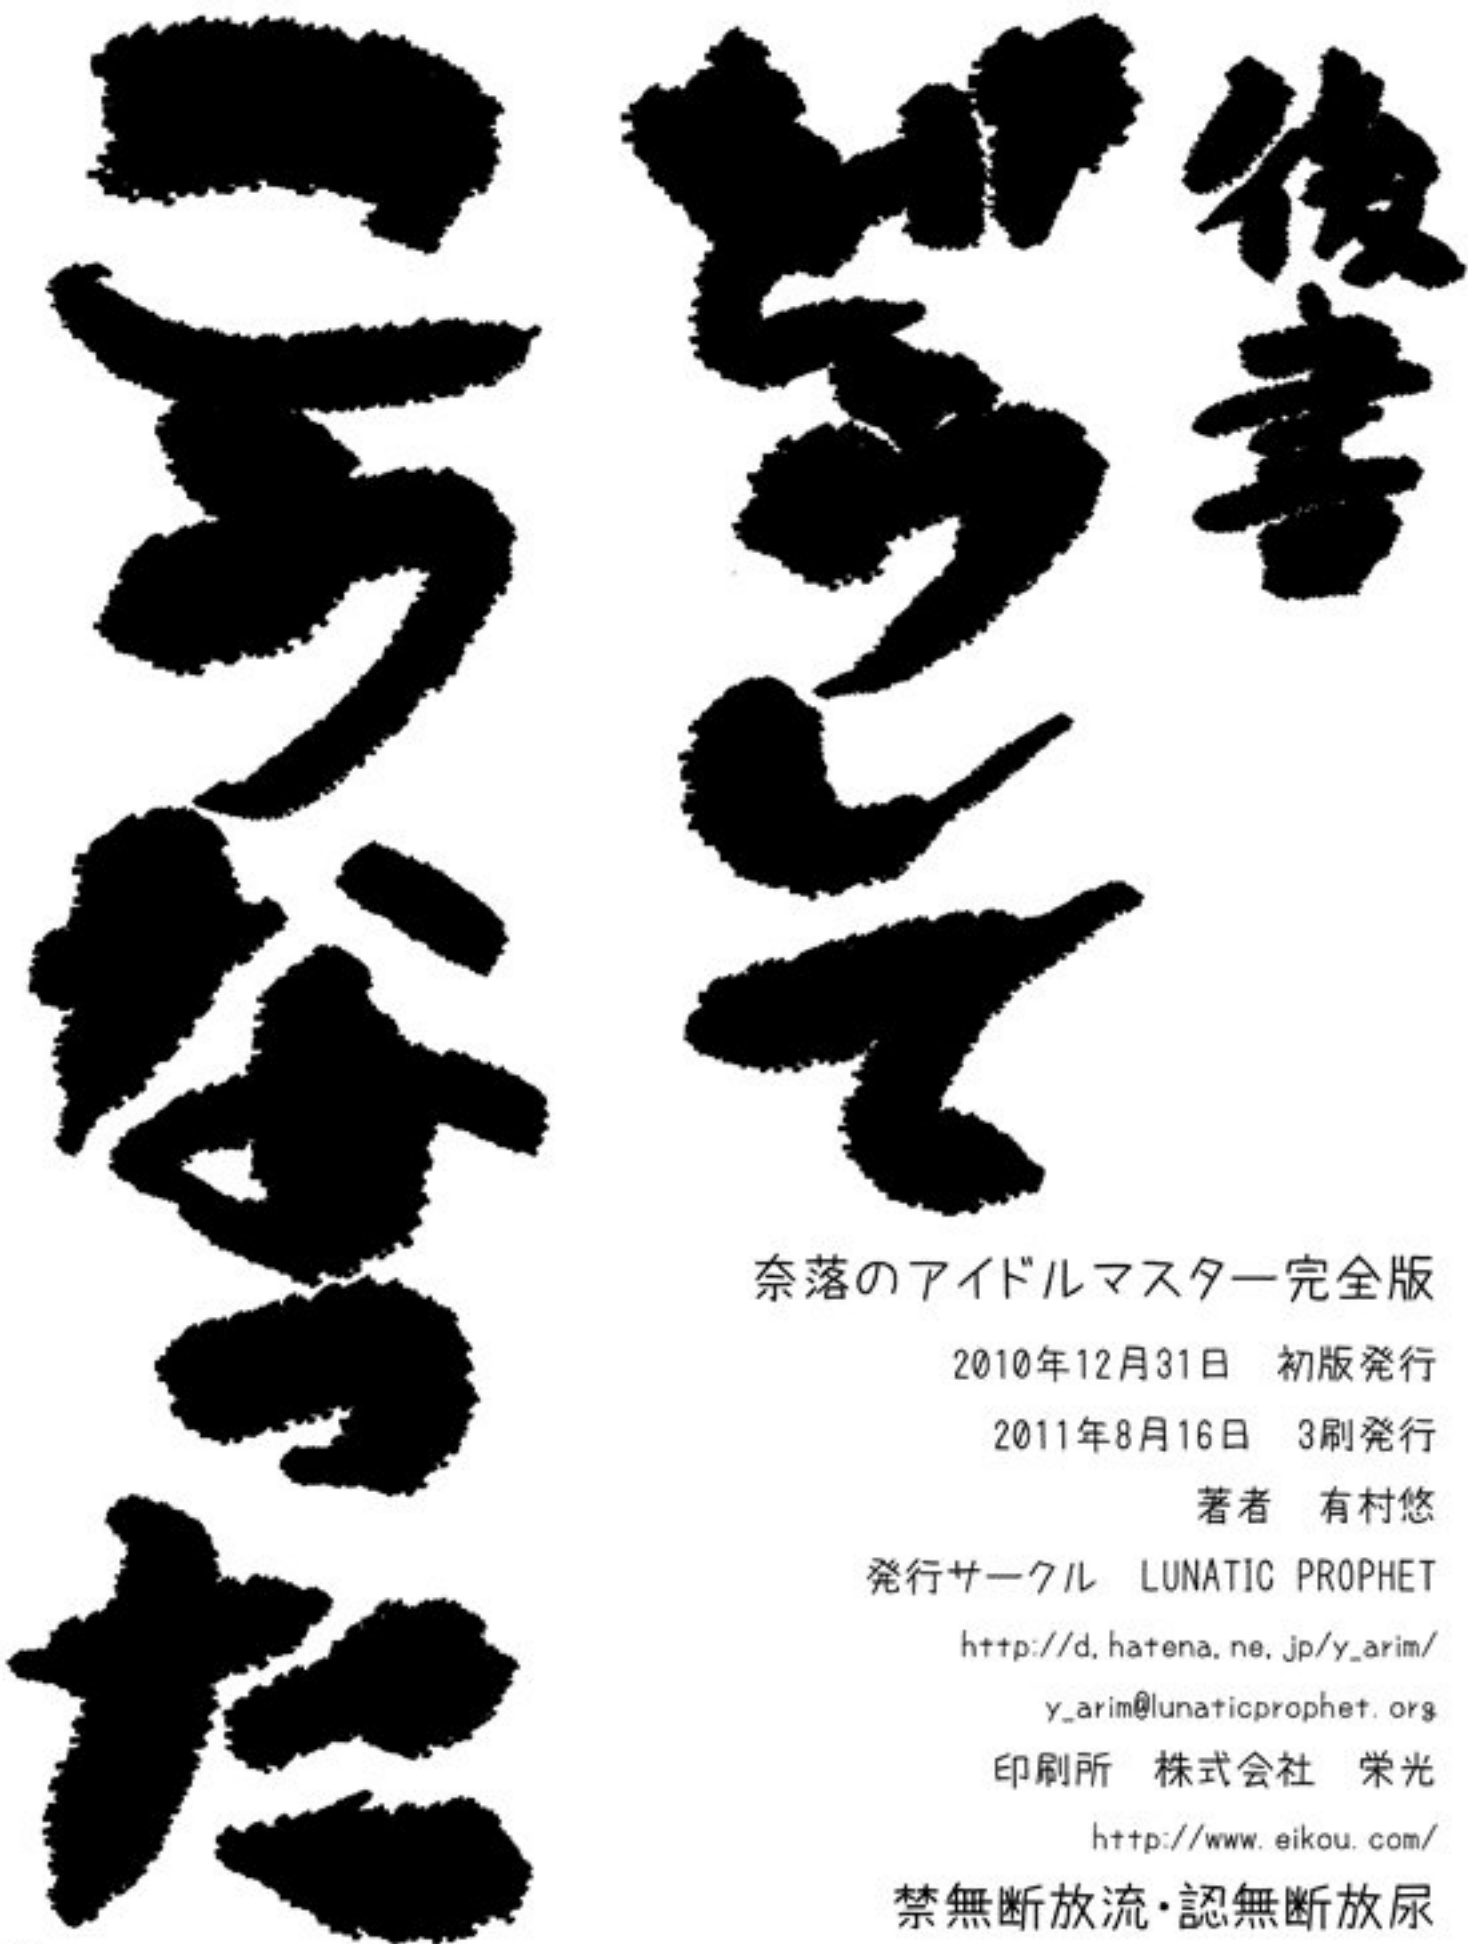 後書
どうして
こうなった
奈落のアイドルマスター完全版
2010年12月31日　初版発行
2011年8月16日　3刷発行
著者　有村悠
発行サークル　LUNATIC PROPHET
http://d.hatena.ne.jp/y_arim/
y_arim@lunaticprophet.org
印刷所　株式会社　栄光
http://www.eikou.com/
禁無断放流・認無断放尿